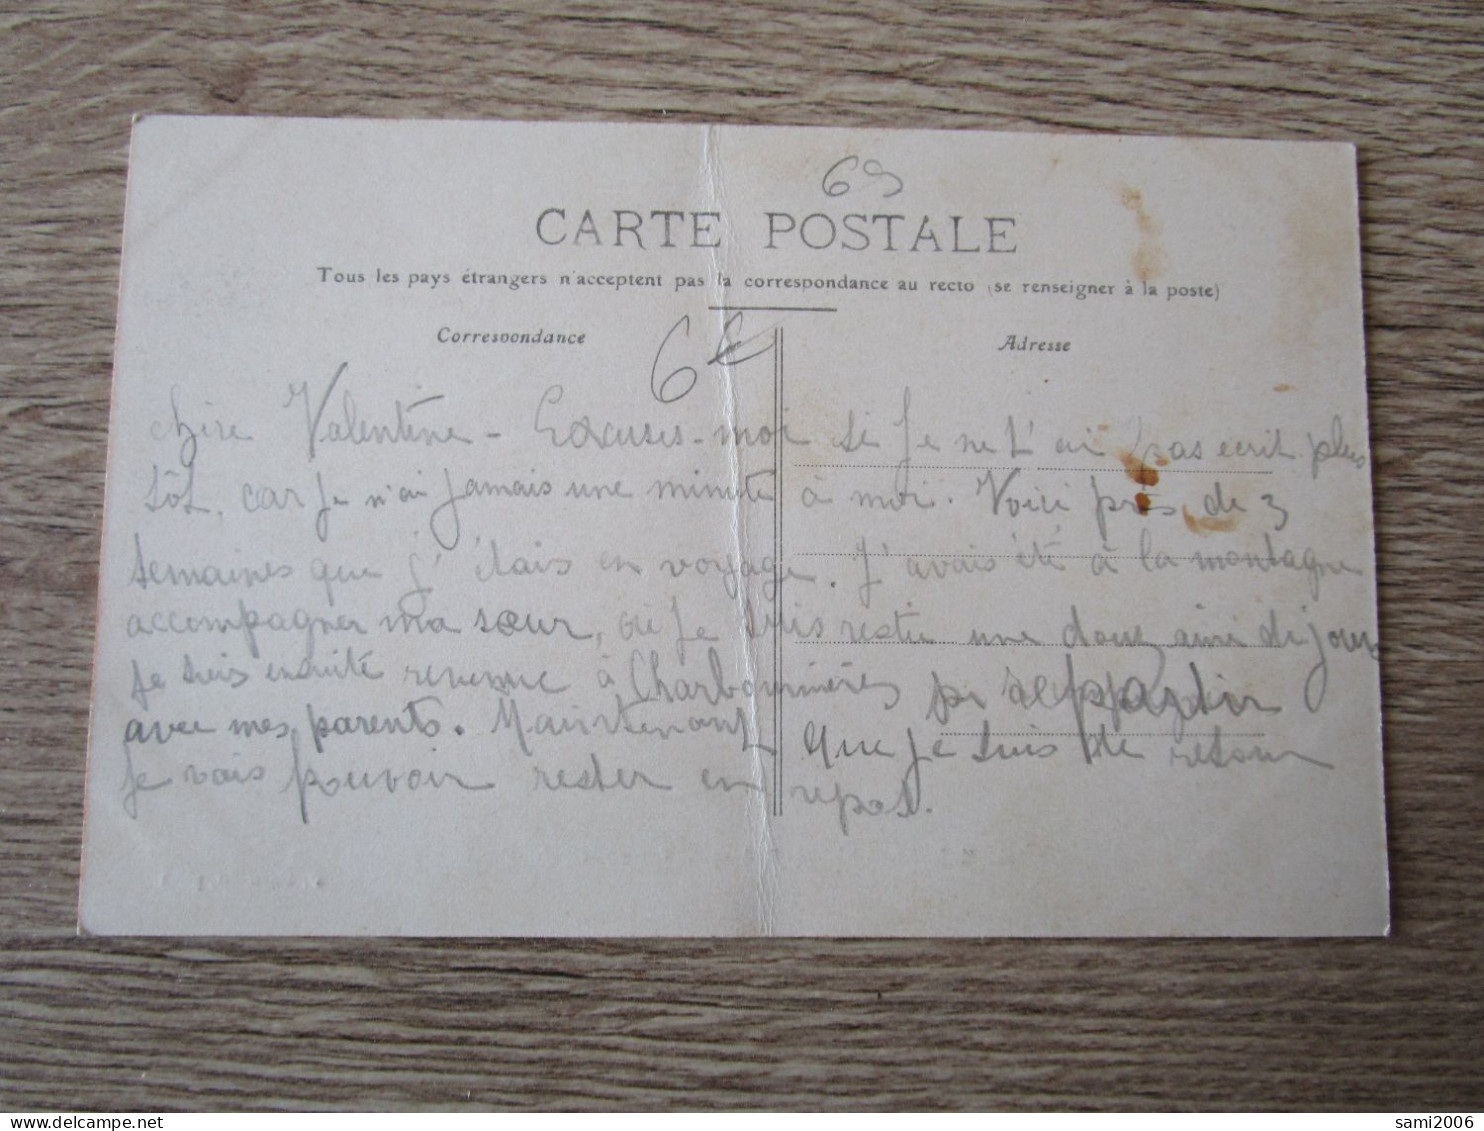 69
CARTE POSTALE
Tous les pays étrangers n'acceptent pas la correspondance au recto (se renseigner à la poste)
Correspondance
Adresse
6€
chère Valentine - Excuses-moi si je ne t'ai pas ecrit plus
tôt, car je n'ai jamais une minute à moi. Voici près de 3
semaines que j'étais en voyage. J'avais été à la montagne
accompagner ma sœur, où je suis restée une douzaine de jours
je suis ensuite revenue à Charbonnières
avec mes parents. Maintenant que je suis de retour
je vais pouvoir rester en repos.
sami2006